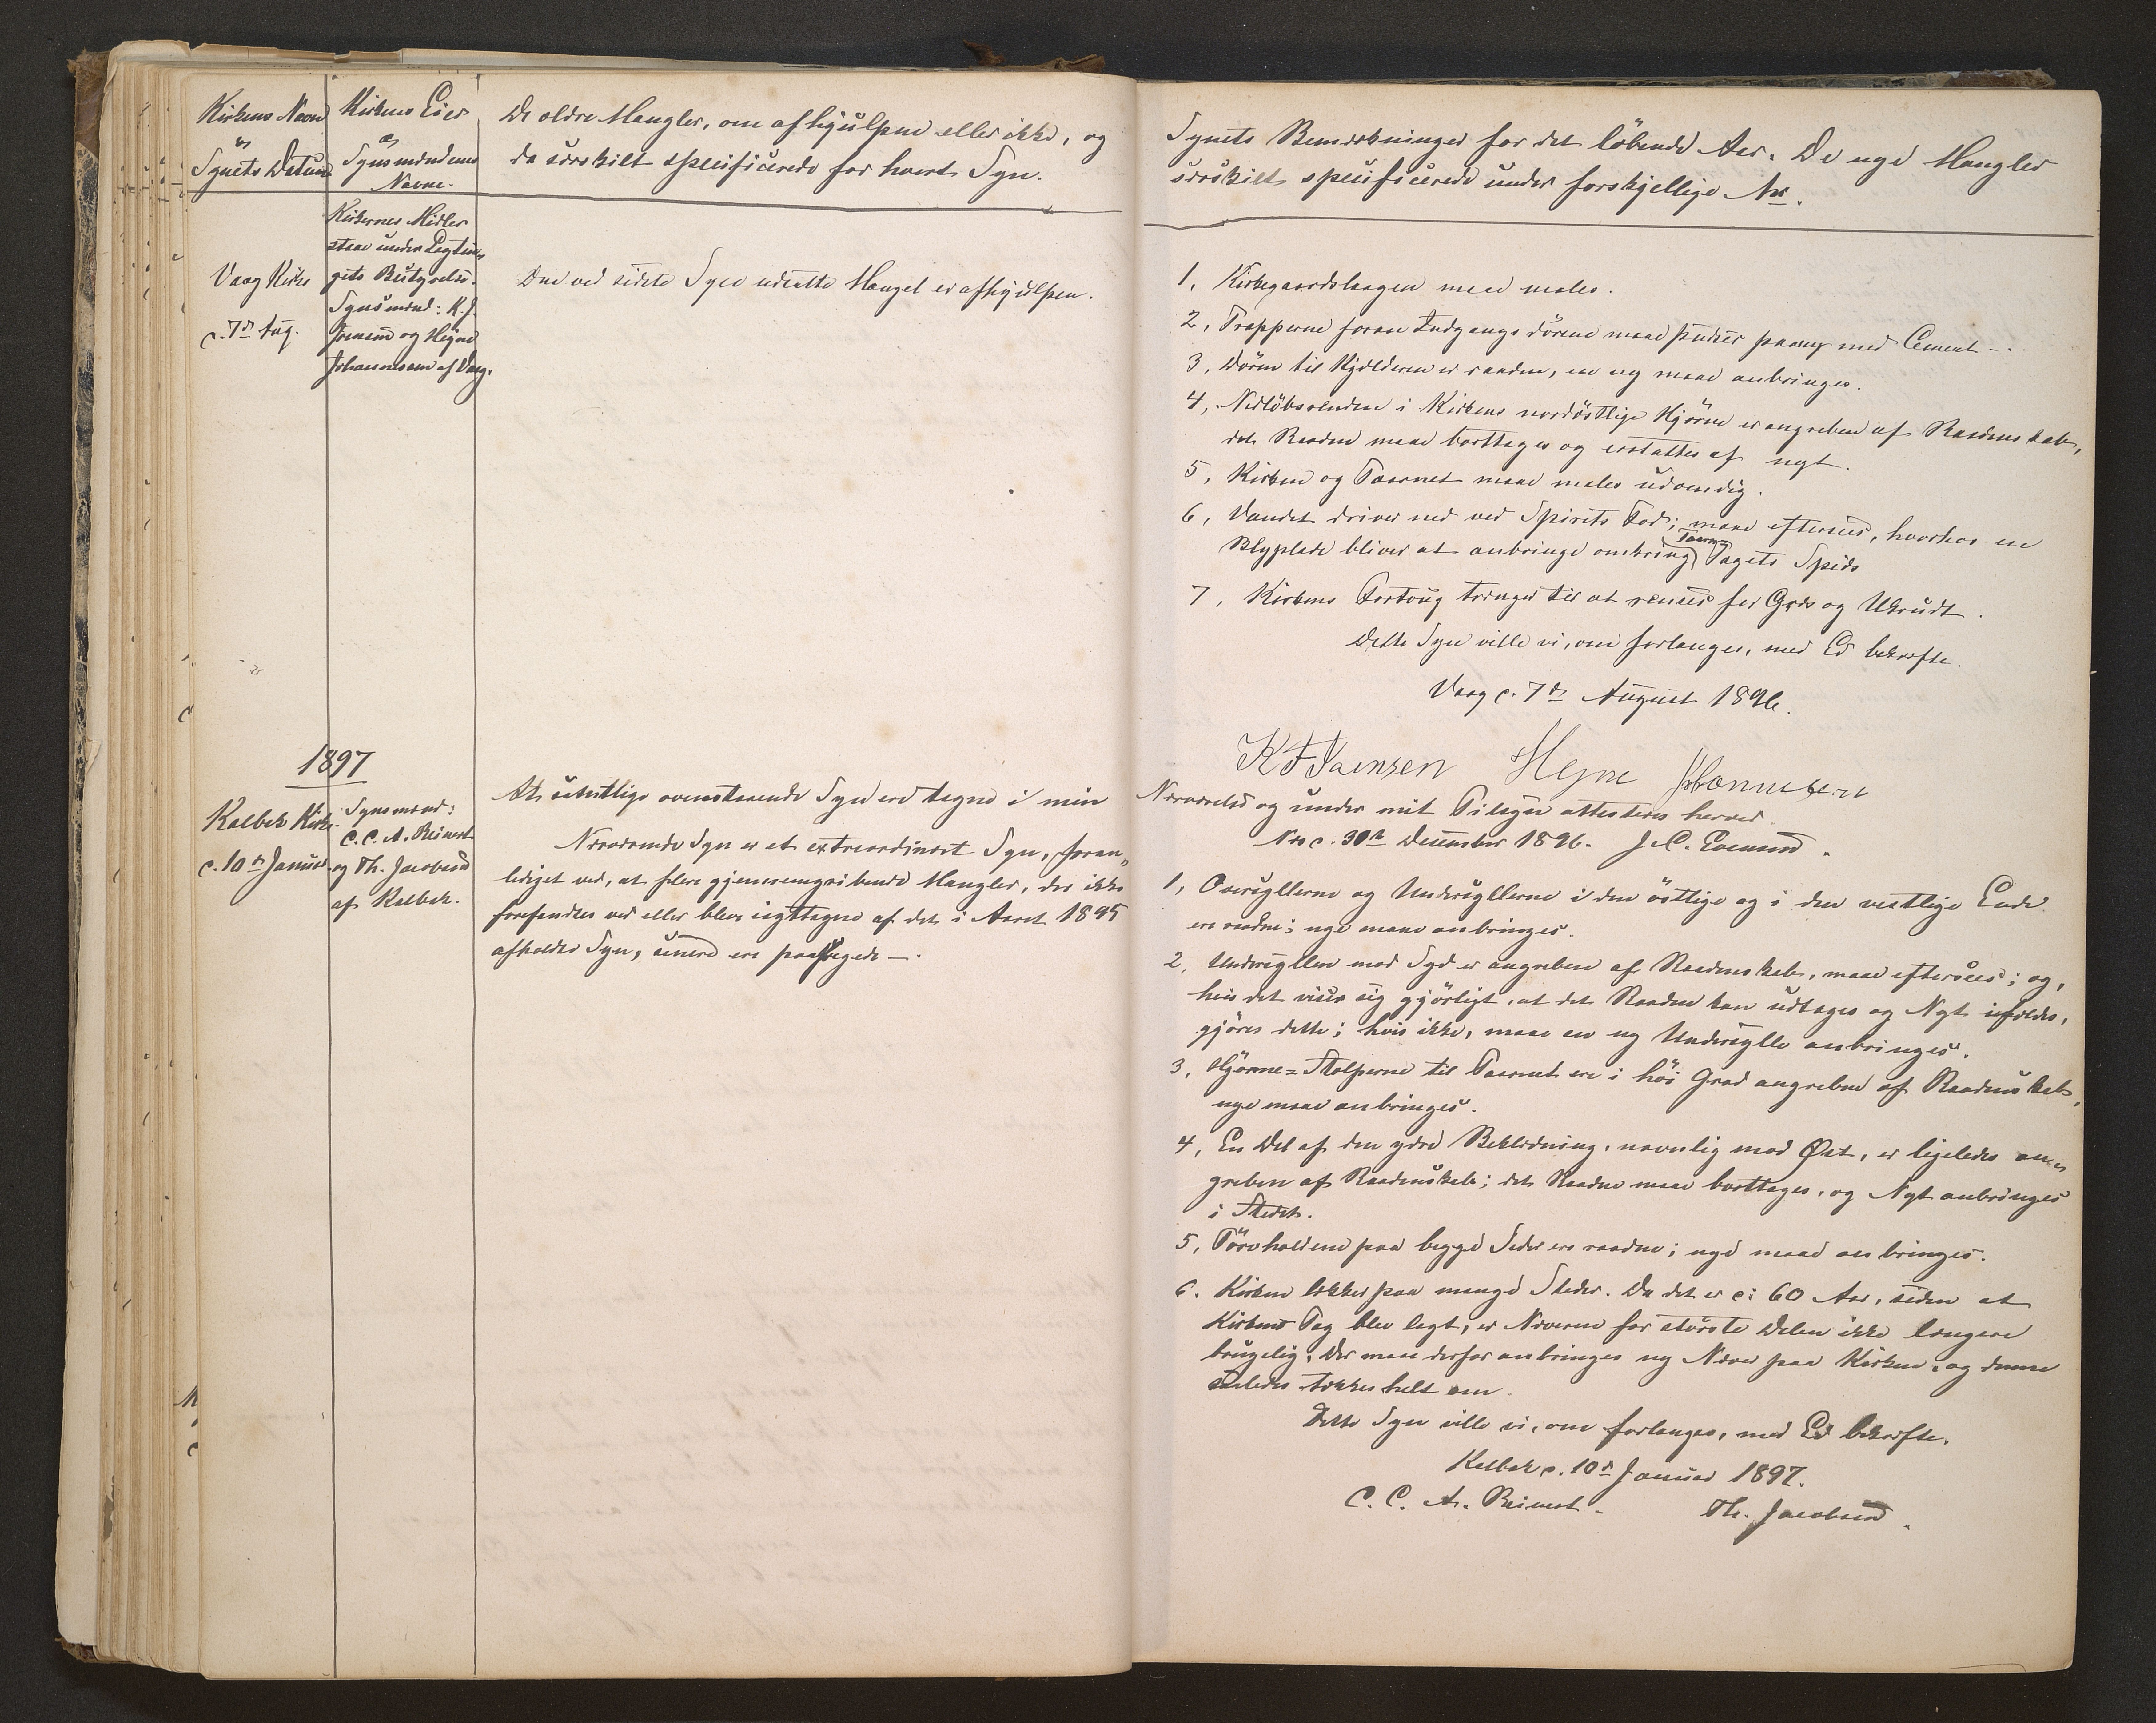 Kirkens Navn
og
Synets Datum
Kirkens Eier
og
Synsmændenes
Navne.
De ældre Mangler, om afhjulpne eller ikke, og
da særskilt specificerede for hvert Syn.
Vaag Kirke
c. 7de Aug.
Kirkernes Midler
staae under Lagtin-
gets Bestyrelse.
Synsmænd: K. J.
Joensen og Hejne
Johannesen af Vaag.
Den ved sidste Syn udsatte Mangel er afhjulpen.
1897
Kalbak Kirke
c. 10de Januar
Synsmænd:
C. C. A. Reinert
og Th. Jacobsen
af Kalbak.
At samtlige ovenstaaende Syn ere tagne i min
Nærværende Syn er et extraordinært Syn, foran-
lediget ved, at flere gjennemgribende Mangler, der ikke
forefandtes ved eller bleve iagttagne af det i Aaret 1895
afholdte Syn, senere ere paaklagede —.
Synets Bemærkninger for det løbende Aar. De nye Mangler
særskilt specificerede under forskjellige Nr.
1, Kirkegaardslaagen maa males.
2, Trapperne foran Indgangsdørene maae pudses paany med Cement —.
3, Døren til Kjælderen er raadden, en ny maae anbringes.
4, Nedløbsrenden i Kirkens nordøstlige Hjørne er angreben af Raaddenskab,
det Raadne maae borttages og erstattes af nyt.
5, Kirken og Taarnet maae males udvendig.
6, Vandet driver ned ved Spirets Fod; maae eftersees, hvorhos en
Blyplade bliver at anbringe omkring Taarn
Tagets Spids
7, Kirkens Fortoug trænger til at renses for Græs og Ukrudt.
Dette Syn ville vi, om forlanges, med Ed bekræfte.
Vaag c. 7de August 1896.
K J Joensen Hejne Johannesen
Nærværelse og under mit Tilsyn attesteres herved.
Næs c. 30te December 1896. J. C. Evensen.
1, Oversyllerne og Undersyllerne i den østlige og i den vestlige Ende
ere raadne; nye maae anbringes.
2, Undersyllen mod Syd er angreben af Raaddenskab, maae eftersees; og,
hvis det viser sig gjørligt, at det Raadne kan udtages og Nyt ifældes,
gjøres dette; hvis ikke, maae en ny Undersylle anbringes.
3, Hjørne=Stolperne til Taarnet ere i høi Grad angrebne af Raaddenskab,
nye maae anbringes.
4, En Del af den ydre Beklædning, navnlig mod Øst, er ligeledes an-
greben af Raaddenskab; det Raadne maae borttages, og Nyt anbringes
i Stedet.
5, Tørvholdene paa begge Sider ere raadne; nye maae anbringes.
6. Kirken lækker paa mange Steder. Da det er c: 60 Aar, siden at
Kirkens Tag blev lagt, er Næveren for største Delen ikke længere
brugelig; der maae derfor anbringes ny Næver paa Kirken, og denne
saaledes tækkes helt om.
Dette Syn ville vi, om forlanges, med Ed bekræfte.
Kalbak c. 10de Januar 1897.
C. C. A. Reinert — Th. Jacobsen.